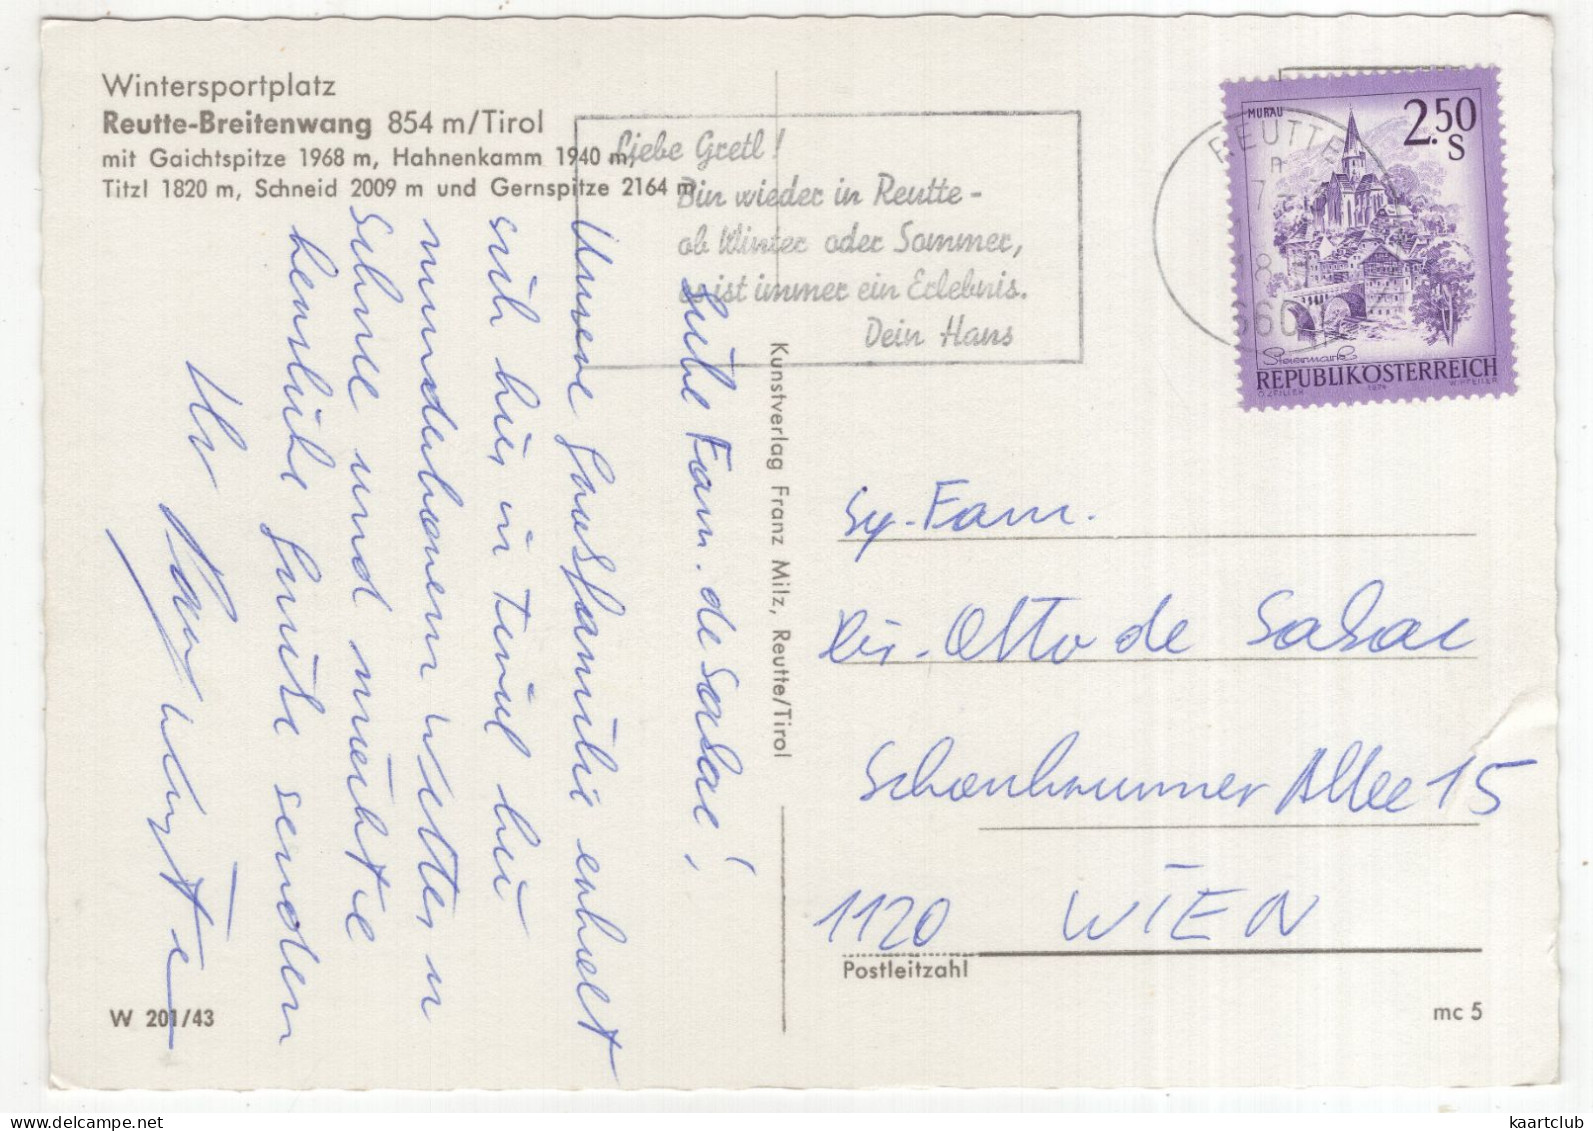 Wintersportplatz
Reutte-Breitenwang 854 m/Tirol
mit Gaichtspitze 1968 m, Hahnenkamm 1940 m,
Titzl 1820 m, Schneid 2009 m und Gernspitze 2164 m
Liebe Gretl!
Bin wieder in Reutte -
ob Winter oder Sommer,
es ist immer ein Erlebnis.
Dein Hans
REUTTE
MURAU
2.50
S
Steiermark
REPUBLIK ÖSTERREICH
O. ZEILLER 1974 W. PFEILER
Liebe Fam. de Salac!
Unsere Hausfamilie erholt
sich hier in Tirol bei
wunderbarem Wetter u
Schnee und möchte
herzliche Grüße senden
Ihr
Kunstverlag Franz Milz, Reutte/Tirol
Fam.
Dir. Otto de Salac
Schönbrunner Allee 15
1120 WIEN
Postleitzahl
W 201/43
mc 5
www.delcampe.net
kaartclub